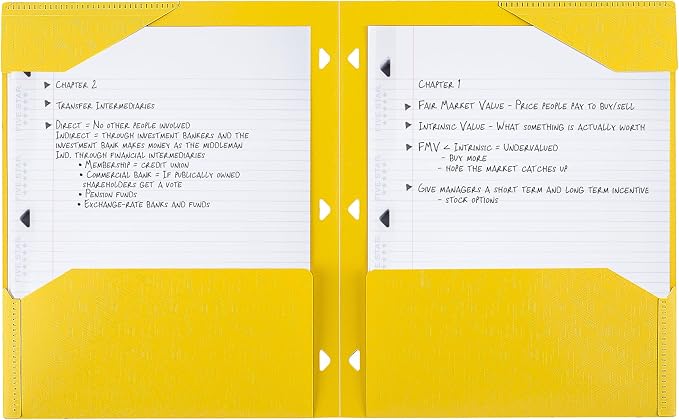 CHAPTER 2
TRANSFER INTERMEDIARIES
DIRECT = NO OTHER PEOPLE INVOLVED
INDIRECT = THROUGH INVESTMENT BANKERS AND THE
INVESTMENT BANK MAKES MONEY AS THE MIDDLEMAN
IND. THROUGH FINANCIAL INTERMEDIARIES
• MEMBERSHIP = CREDIT UNION
• COMMERCIAL BANK = IF PUBLICALLY OWNED
SHAREHOLDERS GET A VOTE
• PENSION FUNDS
• EXCHANGE-RATE BANKS AND FUNDS
FIVE STAR
FIVE STAR
CHAPTER 1
FAIR MARKET VALUE - PRICE PEOPLE PAY TO BUY/SELL
INTRINSIC VALUE - WHAT SOMETHING IS ACTUALLY WORTH
FMV < INTRINSIC = UNDERVALUED
- BUY MORE
- HOPE THE MARKET CATCHES UP
GIVE MANAGERS A SHORT TERM AND LONG TERM INCENTIVE
- STOCK OPTIONS
FIVE STAR
FIVE STAR